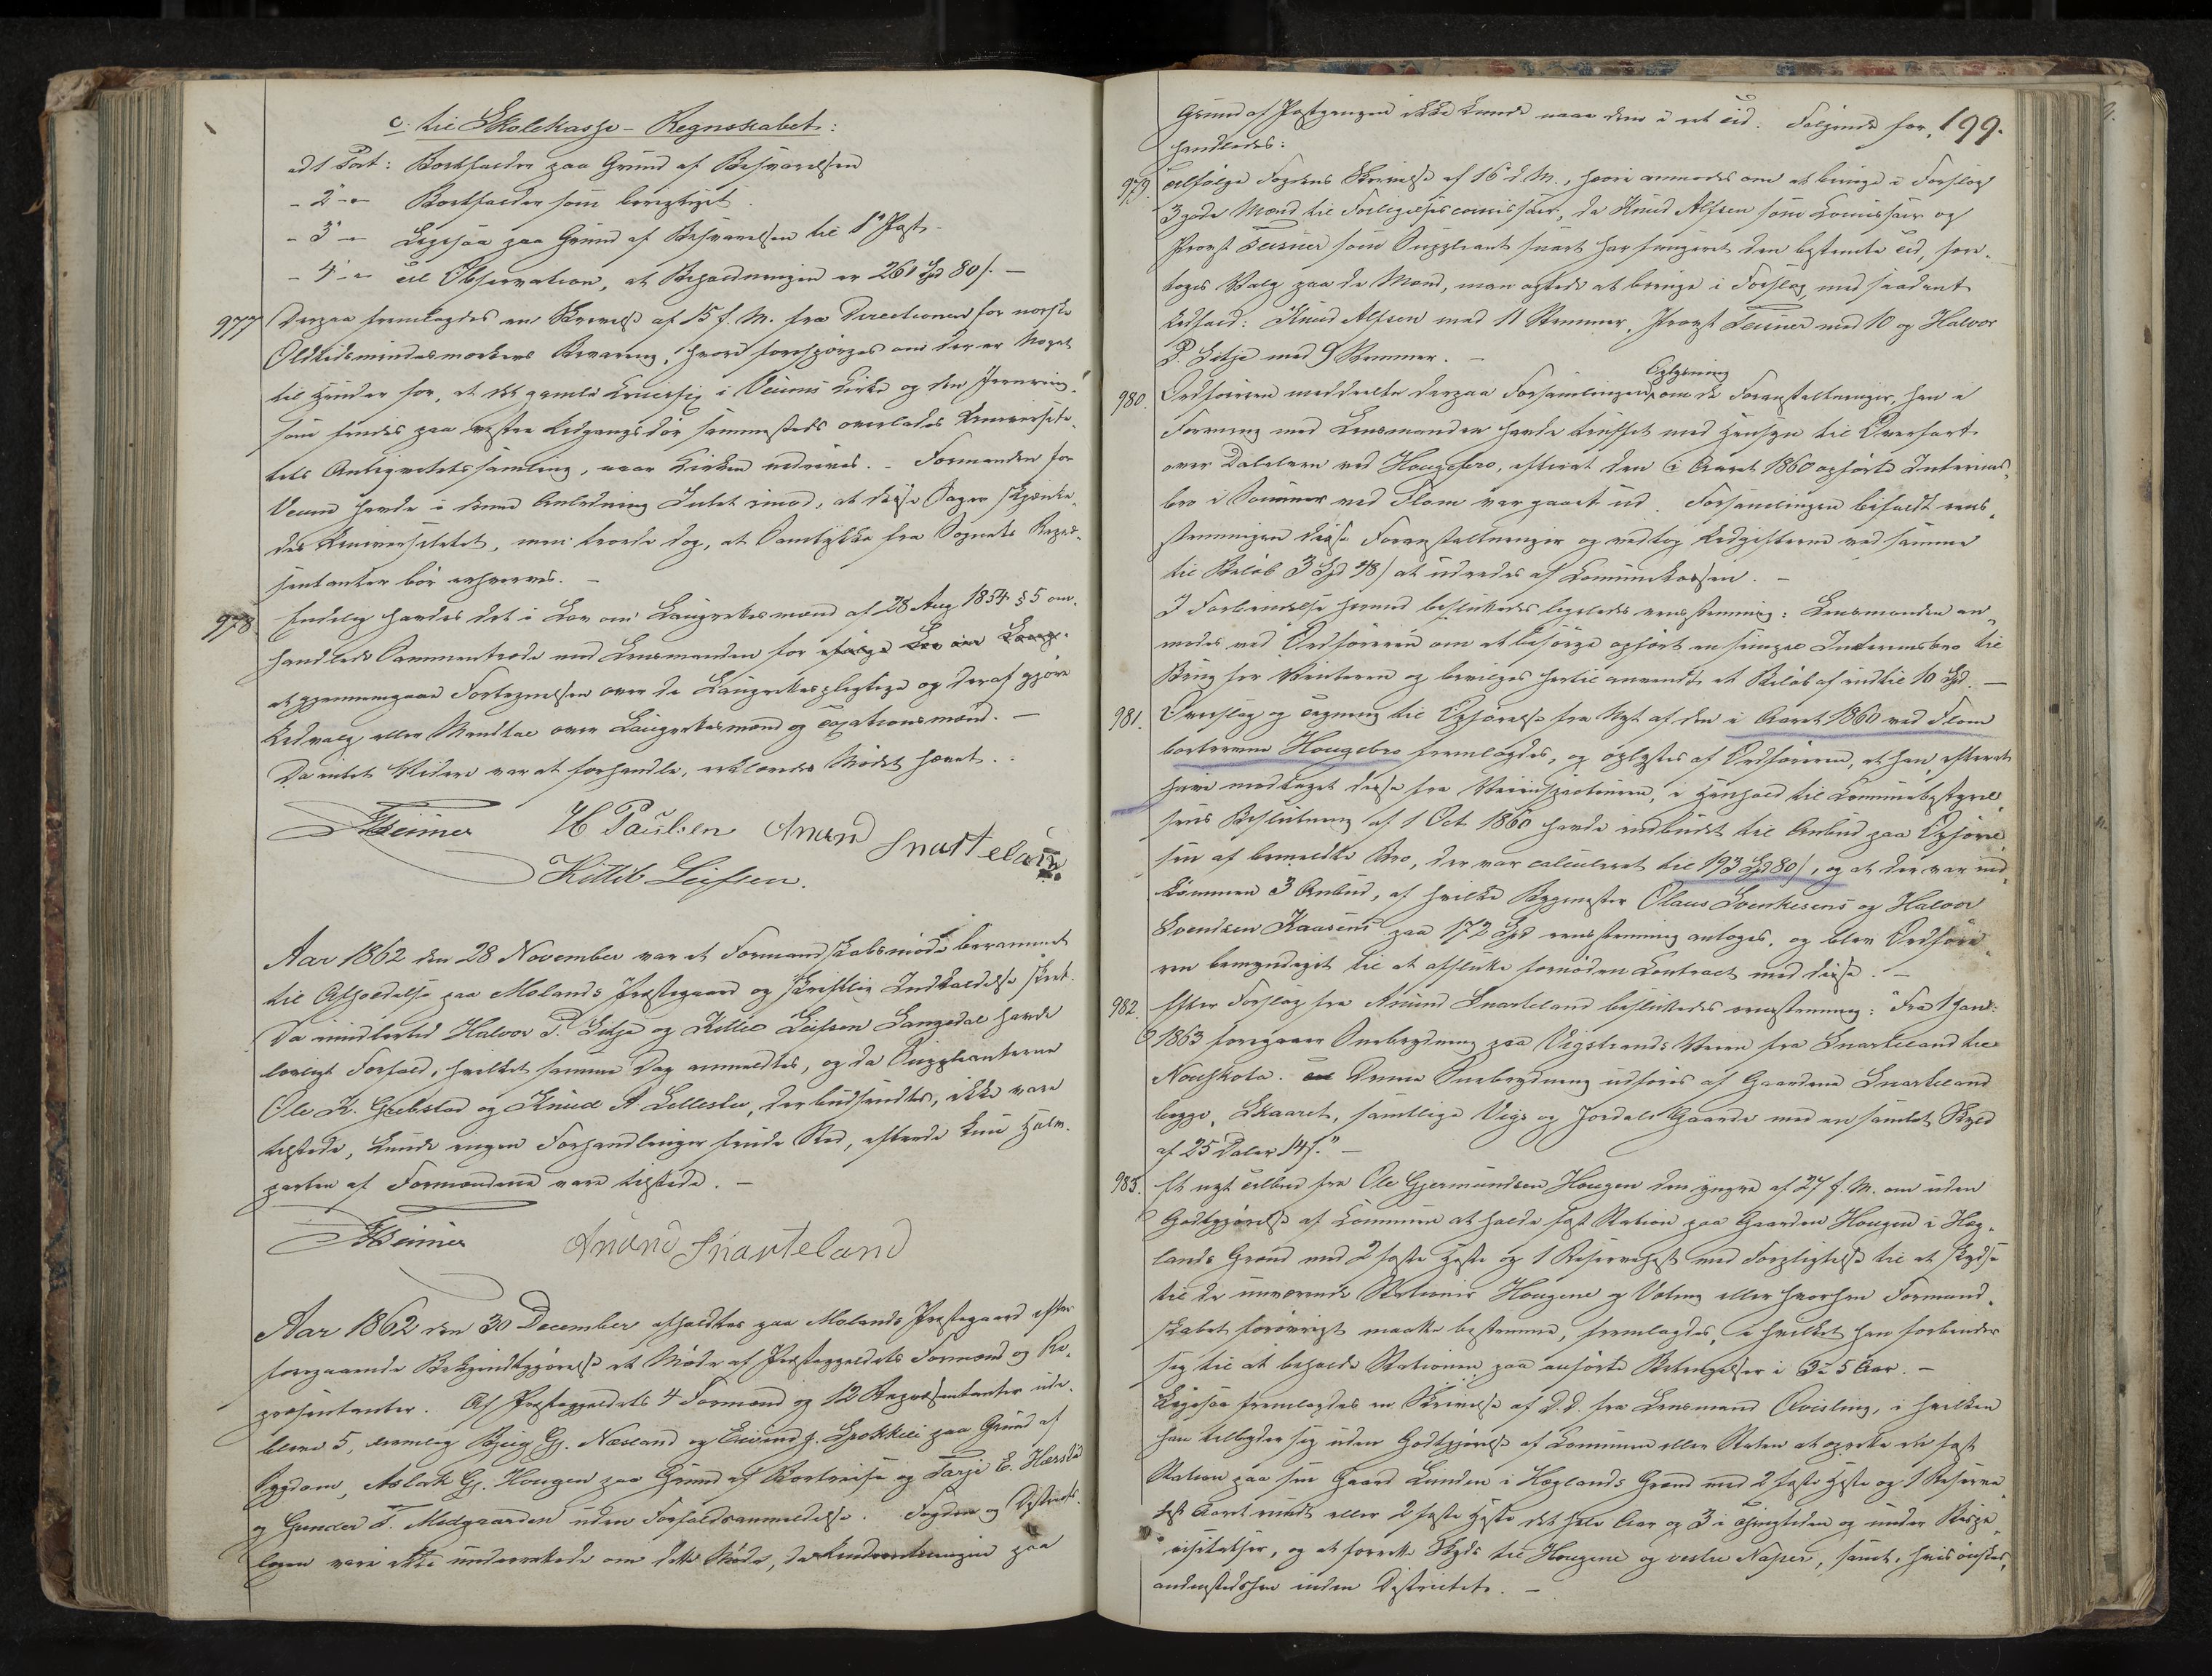 c. til Skolekasse-Regnskabet:
ad 1 Post: Bortfalder paa Grund af Besvarelsen
- 2 - " - Bortfalder som berigtiget.
- 3 - " - Ligesaa paa Grund af Besvarelsen til 1ste Post.
- 4 - " - Til Observation, at Beholdningen er 261 Spd 80 s. —
977 Derpaa fremlagdes en Skrivelse af 15 f. M. fra Directionen for norske
Oldtidsmindesmærkers Bevaring, hvori forespørges om der er Noget
til Hinder for, at det gamle Crucifix i Veums Kirke og den Jernring
som findes paa vestre Udgangsdør sammesteds overlades Universite-
tets Antiqvitetssamling, naar Kirken nedrives. - Formanden for
Veum havde i denne Anledning Intet imod, at disse Sager skjænke-
des Universitetet, men troede dog, at Samtykke fra Sognets Repræ-
sentanter bør erhverves. —
978. Endelig havdes det i Lov om Laugrettesmænd af 28 Aug 1854 § 5 om-
handlede Sammentræde med Lensmanden for ifølge Lov om Laug-
at gjennemgaae Fortegnelsen over de Laugrettespligtige og deraf gjøre
Udvalg eller Mandtal over Laugrettesmænd og Taxationsmænd. —
Da intet Videre var at forhandle, erklæredes Mødet hævet. .
H Paulsen Anund Snarteland
Kittil Leifsen.
Aar 1862 den 28 November var et Formandskabsmøde berammet
til Afholdelse paa Molands Præstegaard og skriftlig Indkaldelse skeet.
Da imidlertid Halvor P. Litje og Kittil Leifsen Langedal havde
lovligt Forfald, hvilket samme Dag anmeldtes, og da Suppleanterne
Ole K. Grebstad og Knud A Lilleslev, der budsendtes, ikke vare
tilstede, kunde ingen Forhandlinger finde Sted, efterdi kun Halv-
parten af Formændene vare tilstede. —
Anund Snarteland
Aar 1862 den 30 December afholdtes paa Molands Præstegaard efter
foregaaende Bekjendtgjørelse et Møde af Præstegjeldets Formænd og Re-
præsentanter. Af Præstegjeldets 4 Formænd og 12 Repræsentanter ude-
bleve 5, nemlig Gj. Næsland og Eivind J. Grokkeli paa Grund af
Sygdom, Aslak Gj. Hougen paa Grund af Bortreise og Tarje E. Hærstø
og Gunder T. Midgaarden uden Forfaldsanmeldelse. Fogden og Districts-
lægen vare ikke underrettede om dette Møde, da Underretningen paa
Grund af Postgangen ikke kunde naae dem i ret Tid. Følgende for- 199.
handledes:
979. Ifølge Fogdens Skrivelse af 16de d. M., hvori anmodes om at bringe i Forslag
3 gode Mænd til Forligelsescommissair, da Knud Alfsen som Commissair og
Provst Teisner som Suppleant snart har fungeret den bestemte Tid, fore-
toges Valg paa de Mænd, man agtede at bringe i Forslag, med saadant
Udfald: Knud Alfsen med 11 Stemmer, Provst Teisner med 10 og Halvor
P. Litje med 9 Stemmer. —
Oplysning
980. Ordføreren meddeelte derpaa Forsamlingen om de Foranstaltninger, han i
Forening med Lensmanden havde truffet med Hensyn til Overfart
over Dalelven ved Hougebro, efterat den i Aaret 1860 opførte Interims-
bro i Sommer ved Flom var gaaet ud. Forsamlingen bifaldt eens-
stemmigen disse Foranstaltninger og vedtog Udgifterne ved samme
til Beløb 3 Spd 48 s at udredes af Communekassen. —
I Forbindelse hermed besluttedes ligeledes eensstemmig: Lensmanden an-
modes ved Ordføreren om at besørge opført en simpel Interimsbro til
Brug for Vinteren og bevilges hertil anvendt et Beløb af indtil 10 Spd. —
981. Overslag og Tegning til Opførelse fra Nyt af den i Aaret 1860 ved Flom
borttagne Hougebro fremlagdes, og oplystes af Ordføreren, at han efterat
have modtaget disse fra Veiinspecteuren, i Henhold til Communebestyrel-
sens Beslutning af 1 Oct 1860 havde indbudt til Anbud paa Opførel-
sen af bemeldte Bro, der var calculeret til 193 Spd 80 s, og at der var ind-
kommen 3 Anbud, af hvilke Bygmester Olaus Svenkesens og Halvor
Svendsen Kaasens paa 172 Spd eensstemmig antoges, og blev Ordføre-
ren bemyndiget til at afslutte fornøden Contract med disse. —
982. Efter Forslag fra Anund Snarteland besluttedes eensstemmig: "Fra 1 Jan:
1863 foregaaer Snebrydning paa Vigstrands Veien fra Snarteland til
Nordskota. Denne Snebrydning udføres af Gaardene Snarteland
begge, Skaaret, samtlige Vigs og Jordals Gaarde med en samlet Skyld
af 25 Daler 14 s." —
983. Et nyt Tilbud fra Ole Gjermundsen Hougen den yngre af 27 f. M. om uden
Godtgjørelse af Communen at holde fast Station paa Gaarden Hougen i Høg-
lands Grend med 2 faste Heste og 1 Reservehest med Forpligtelse til at skydse
til de nuværende Stationer Hougene og Veting eller hvorhen Formand-
skabet forøvrigt maatte bestemme, fremlagdes, i hvilket han forbinder
sig til at beholde Stationen paa anførte Betingelser i 3 à 5 Aar. —
Ligesaa fremlagdes en Skrivelse af D. D. fra Lensmand Qvisling, i hvilken
han tilbyder sig uden Godtgjørelse af Communen eller Staten at oprette en fast
Station paa sin Gaard Lunden i Høglands Grend med 2 faste Heste og 1 Reserve-
hest Aaret rundt eller 2 faste Heste det hele Aar og 3 i Thingtiden og under Bispe-
visitatser, og at forrette Skyds til Hougene og vestre Napper, samt, hvis ønskes,
andenstedshen inden Districtet. —